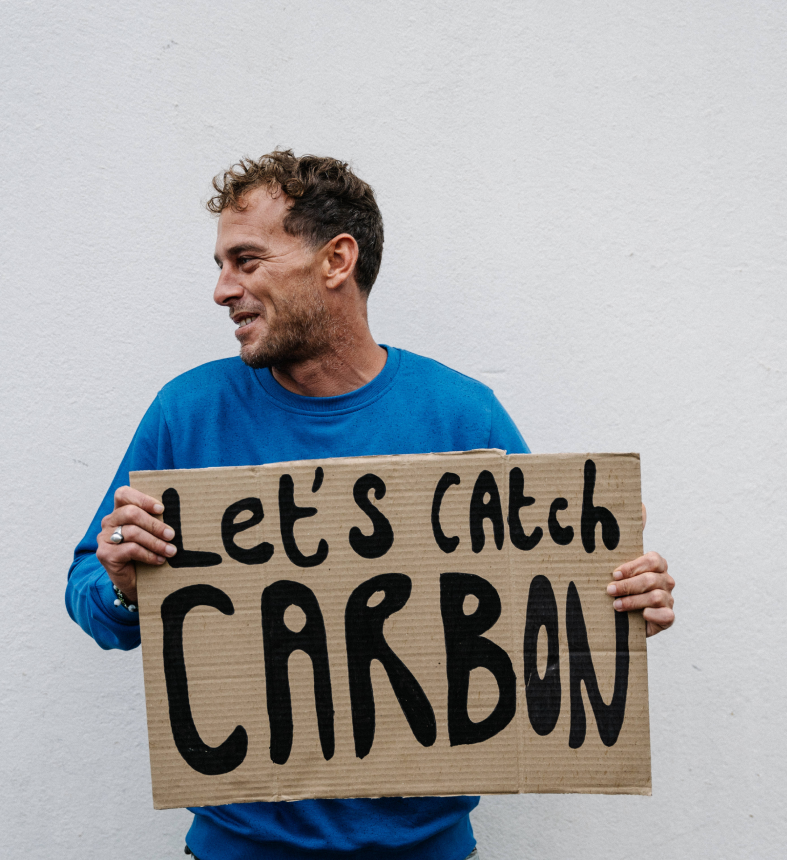 Let's CAtch
CARBON